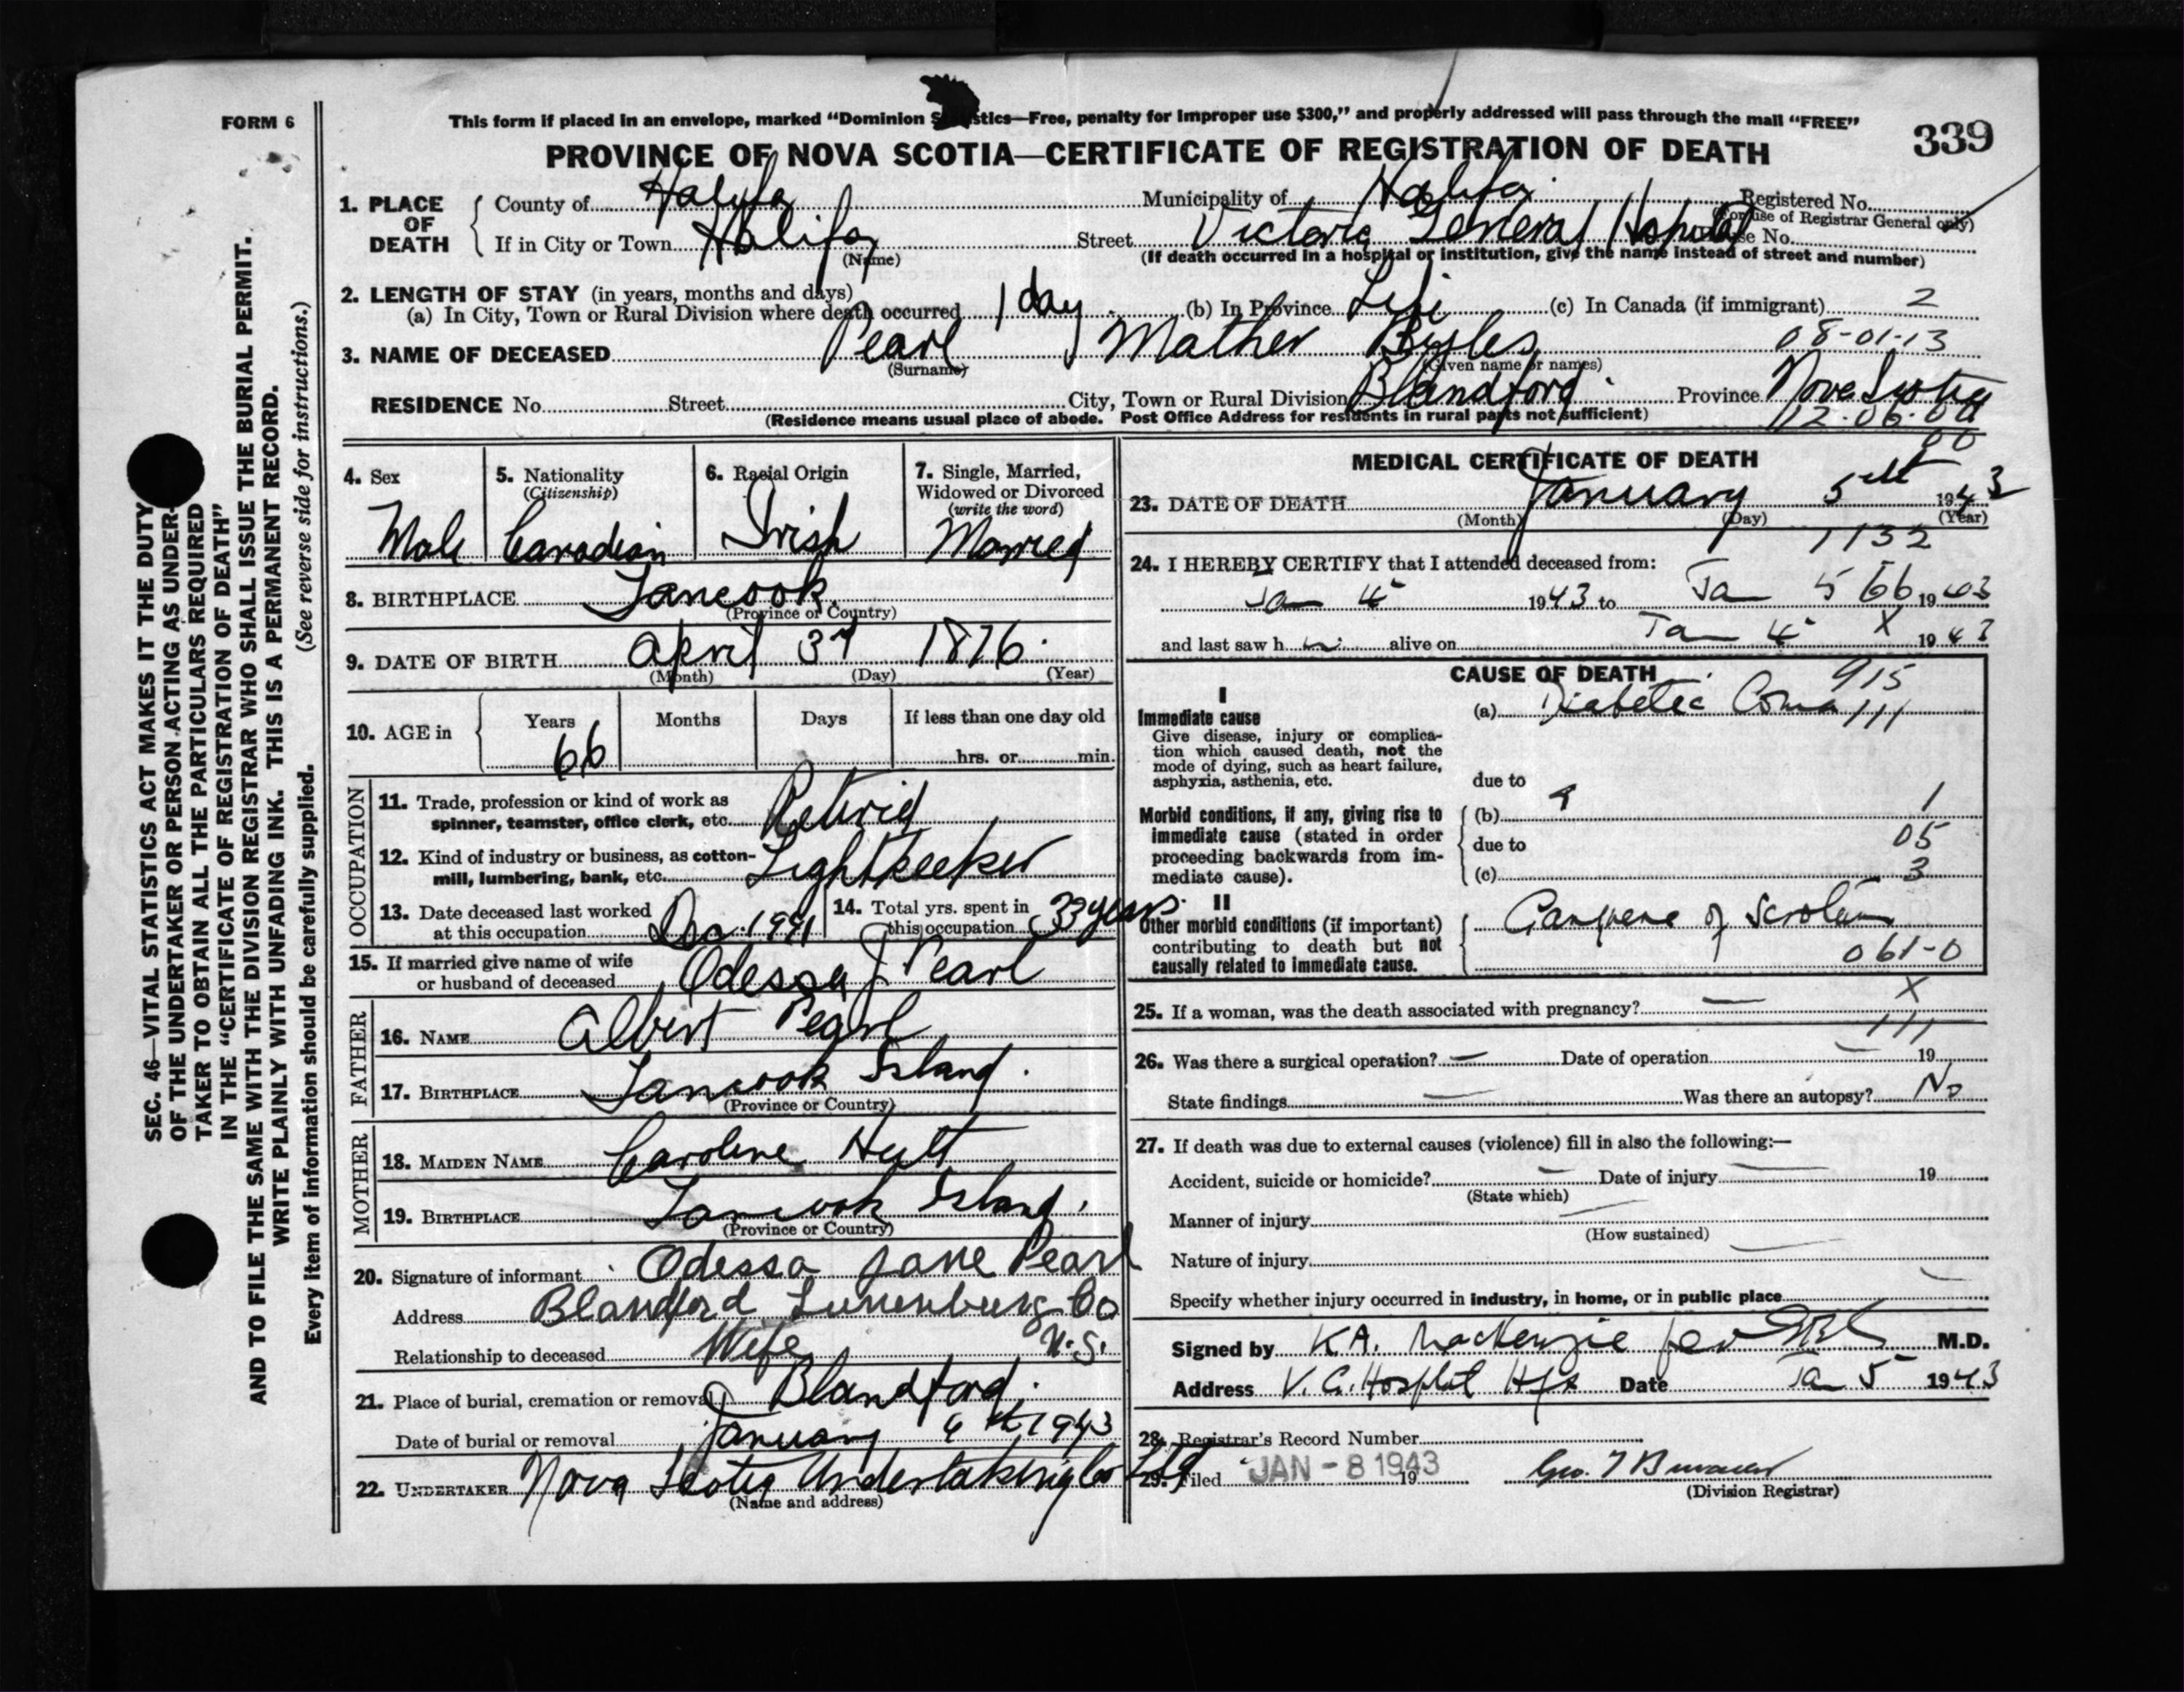 FORM 6
This form if placed in an envelope, marked "Dominion Statistics—Free, penalty for improper use $300," and properly addressed will pass through the mail "FREE"
339
PROVINCE OF NOVA SCOTIA—CERTIFICATE OF REGISTRATION OF DEATH
1. PLACE OF DEATH { County of Halifax Municipality of Halifax Registered No.
(For use of Registrar General only)
If in City or Town Halifax Street Victoria General Hospital House No.
(Name) (If death occurred in a hospital or institution, give the name instead of street and number)
2. LENGTH OF STAY (in years, months and days)
(a) In City, Town or Rural Division where death occurred 1 day (b) In Province Life (c) In Canada (if immigrant) 2
3. NAME OF DECEASED Pearl Mather Byles 08-01-13
(Surname) (Given name or names)
RESIDENCE No. Street City, Town or Rural Division Blandford Province Nova Scotia
(Residence means usual place of abode. Post Office Address for residents in rural parts not sufficient) 12-06-00
00
SEC. 46—VITAL STATISTICS ACT MAKES IT THE DUTY
OF THE UNDERTAKER OR PERSON ACTING AS UNDER-
TAKER TO OBTAIN ALL THE PARTICULARS REQUIRED
IN THE "CERTIFICATE OF REGISTRATION OF DEATH"
AND TO FILE THE SAME WITH THE DIVISION REGISTRAR WHO SHALL ISSUE THE BURIAL PERMIT.
WRITE PLAINLY WITH UNFADING INK. THIS IS A PERMANENT RECORD.
Every item of information should be carefully supplied. (See reverse side for instructions.)
4. Sex 5. Nationality 6. Racial Origin 7. Single, Married,
(Citizenship) Widowed or Divorced
(write the word)
Male Canadian Irish Married
8. BIRTHPLACE Tancook
(Province or Country)
9. DATE OF BIRTH April 3rd 1876
(Month) (Day) (Year)
10. AGE in { Years Months Days If less than one day old
66 hrs. or min.
OCCUPATION
11. Trade, profession or kind of work as
spinner, teamster, office clerk, etc. Retired
12. Kind of industry or business, as cotton-
mill, lumbering, bank, etc. Lightkeeker
13. Date deceased last worked 14. Total yrs. spent in
at this occupation 1941 this occupation 33 years
15. If married give name of wife
or husband of deceased Odessa J Pearl
FATHER
16. NAME Albert Pearl
17. BIRTHPLACE Tancook Island.
(Province or Country)
MOTHER
18. MAIDEN NAME Caroline
19. BIRTHPLACE Tancook Island.
(Province or Country)
20. Signature of informant Odessa Jane Pearl
Address Blandford Lunenburg Co
Relationship to deceased Wife N.S.
21. Place of burial, cremation or removal Blandford.
Date of burial or removal January 6th 1943
22. UNDERTAKER Nova Scotia Undertaking Co Ltd
(Name and address)
MEDICAL CERTIFICATE OF DEATH
23. DATE OF DEATH January 5th 1943
(Month) (Day) (Year)
1132
24. I HEREBY CERTIFY that I attended deceased from:
Jan 4 1943 to Jan 5 66 1943
and last saw h im alive on Jan 4 X 1943
CAUSE OF DEATH 915
I
Immediate cause (a) Diabetic Coma 111
Give disease, injury or complica-
tion which caused death, not the
mode of dying, such as heart failure,
asphyxia, asthenia, etc. due to
Morbid conditions, if any, giving rise to (b) 1
immediate cause (stated in order due to 05
proceeding backwards from im-
mediate cause). (c) 3
II
Other morbid conditions (if important) Gangrene of Scrotum
contributing to death but not
causally related to immediate cause. 061-0
X
25. If a woman, was the death associated with pregnancy? —
111
26. Was there a surgical operation? — Date of operation — 19
State findings — Was there an autopsy? No
27. If death was due to external causes (violence) fill in also the following:—
Accident, suicide or homicide? — Date of injury — 19
(State which)
Manner of injury —
(How sustained)
Nature of injury —
Specify whether injury occurred in industry, in home, or in public place —
Signed by K.A. MacKenzie per M.D.
Address V. G. Hospital Hfx Date Jan 5 1943
28. Registrar's Record Number
29. Filed JAN - 8 1943 19 Geo.
(Division Registrar)